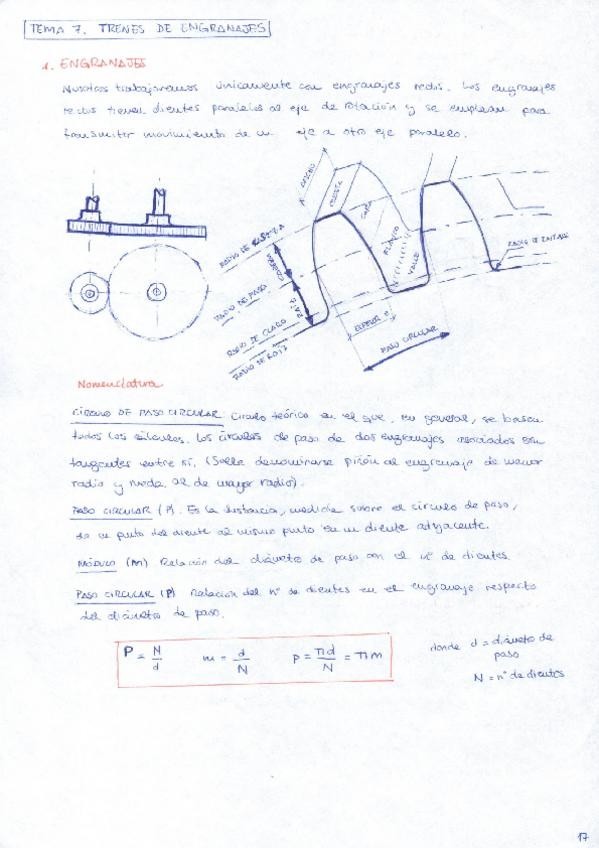 TEMA 7. TRENES DE ENGRANAJES
1. ENGRANAJES
Nosotros trabajaremos únicamente con engranajes rectos. Los engranajes
rectos tienen dientes paralelos al eje de rotación y se emplean para
transmitir movimiento de un eje a otro eje paralelo.
ANCHO
CRESTA
CARA
FLANCO
VALLE
RADIO DE CRESTA
RADIO DE PASO
RADIO DE CLARO
RADIO DE RAÍZ
RAÍZ
ESPESOR e
PASO CIRCULAR
RADIO DE ENTALLE
Nomenclatura
CÍRCULO DE PASO CIRCULAR Círculo teórico en el que, en general, se basan
todos los cálculos. Los círculos de paso de dos engranajes asociados son
tangentes entre sí. (Suele denominarse piñón al engranaje de menor
radio y rueda al de mayor radio).
PASO CIRCULAR (P). Es la distancia, medida sobre el círculo de paso,
de un punto del diente al mismo punto en un diente adyacente.
MÓDULO (M) Relación del diámetro de paso con el nº de dientes
PASO CIRCULAR (P) Relación del nº de dientes en el engranaje respecto
del diámetro de paso.
P = N/d m = d/N p = πd/N = πm
donde d = diámetro de
paso
N = nº de dientes
17